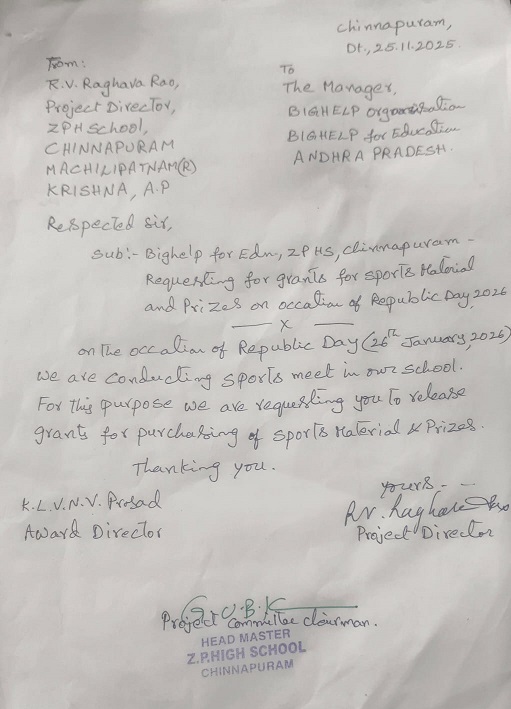 Chinnapuram,
Dt., 25.11.2025.
From:
R.V. Raghava Rao,
Project Director,
ZPH School,
CHINNAPURAM
MACHILIPATNAM(R)
KRISHNA, A.P
To
The Manager,
BIGHELP Organisation
BIGHELP for Education
ANDHRA PRADESH.
Respected Sir,
Sub:- Bighelp for Edn, ZPHS, Chinnapuram -
Requesting for grants for sports Material
and Prizes on occation of Republic Day, 2026
x
on the occation of Republic Day (26th January, 2026)
we are conducting sports meet in our school.
For this purpose we are requesting you to release
grants for purchasing of sports Material & Prizes.
Thanking you.
K.L.V.N.V. Prasad
Award Director
yours - -
R.V. Raghava Rao
Project Director
Project Committee Chairman.
HEAD MASTER
Z.P.HIGH SCHOOL
CHINNAPURAM